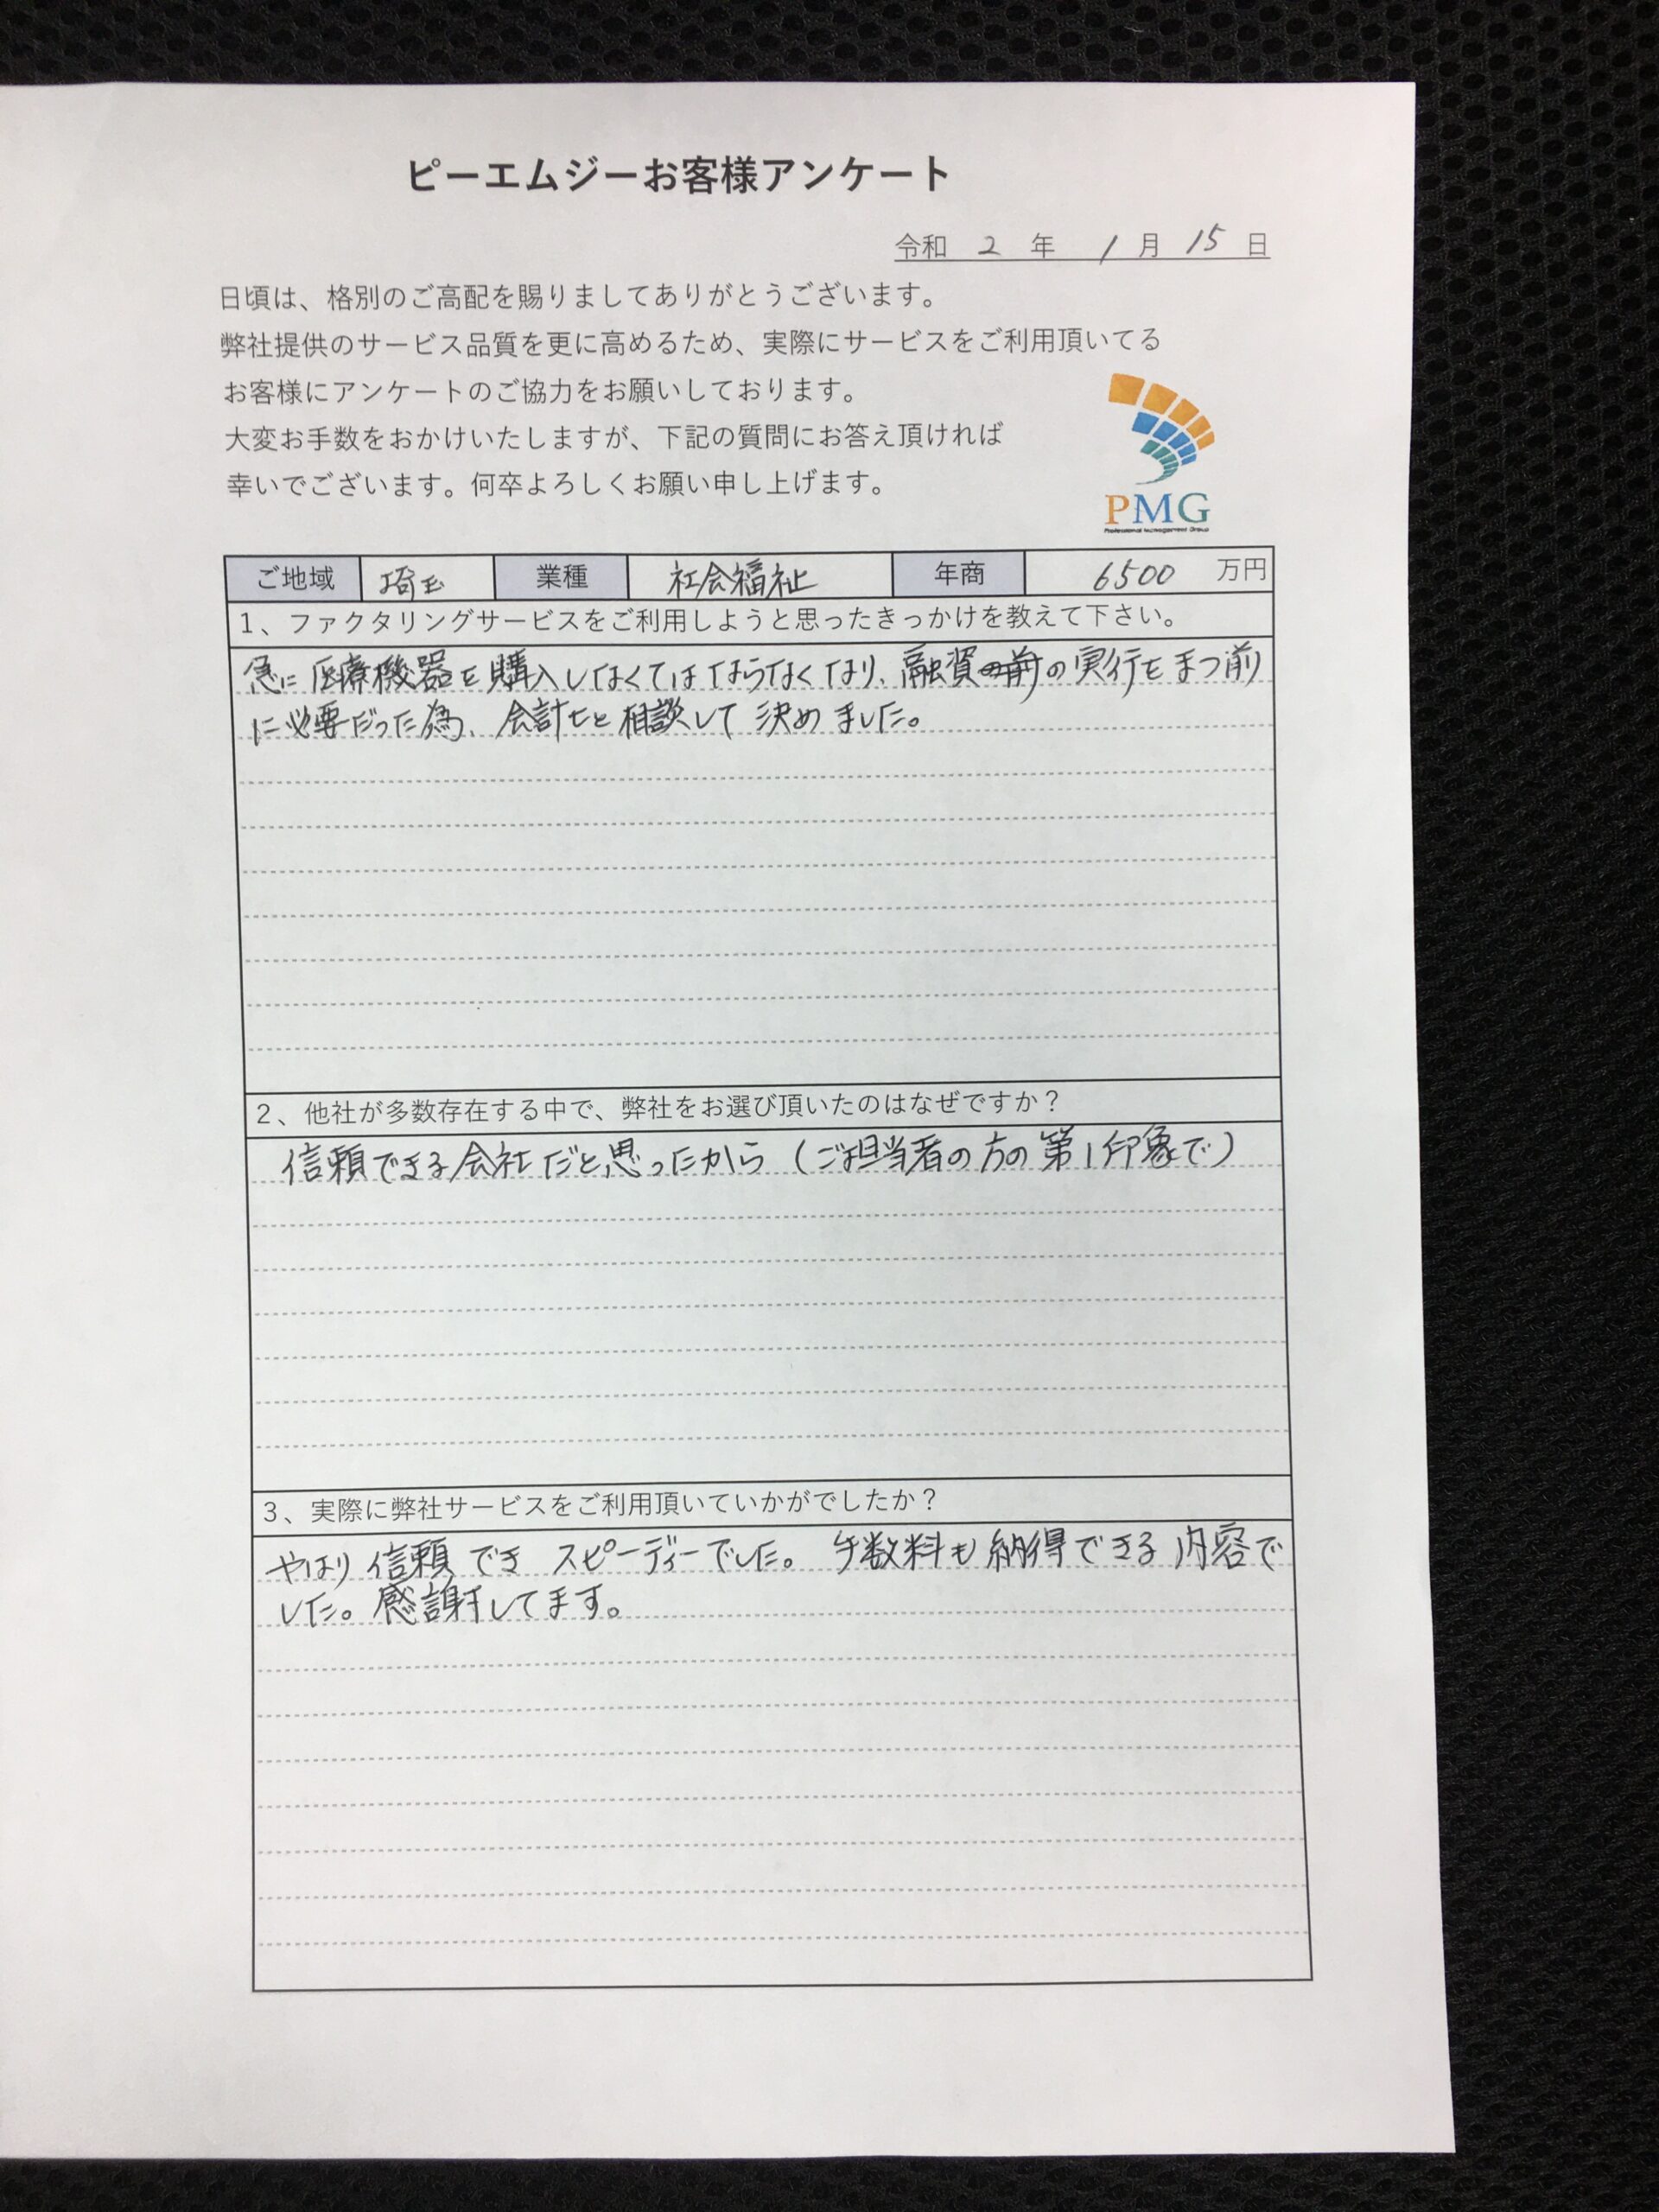 ピーエムジーお客様アンケート
令和 2 年 1 月 15 日
日頃は、格別のご高配を賜りましてありがとうございます。
弊社提供のサービス品質を更に高めるため、実際にサービスをご利用頂いてる
お客様にアンケートのご協力をお願いしております。
大変お手数をおかけいたしますが、下記の質問にお答え頂ければ
幸いでございます。何卒よろしくお願い申し上げます。
PMG
Professional Management Group
ご地域 埼玉 業種 社会福祉 年商 6500 万円
1、ファクタリングサービスをご利用しようと思ったきっかけを教えて下さい。
急に医療機器を購入しなくてはならなくなり、融資の実行をまつ前
に必要だった為、会計士と相談して決めました。
2、他社が多数存在する中で、弊社をお選び頂いたのはなぜですか?
信頼できる会社だと思ったから(ご担当者の方の第1印象で)
3、実際に弊社サービスをご利用頂いていかがでしたか?
やはり信頼でき スピーディーでした。手数料も納得できる内容で
した。感謝してます。